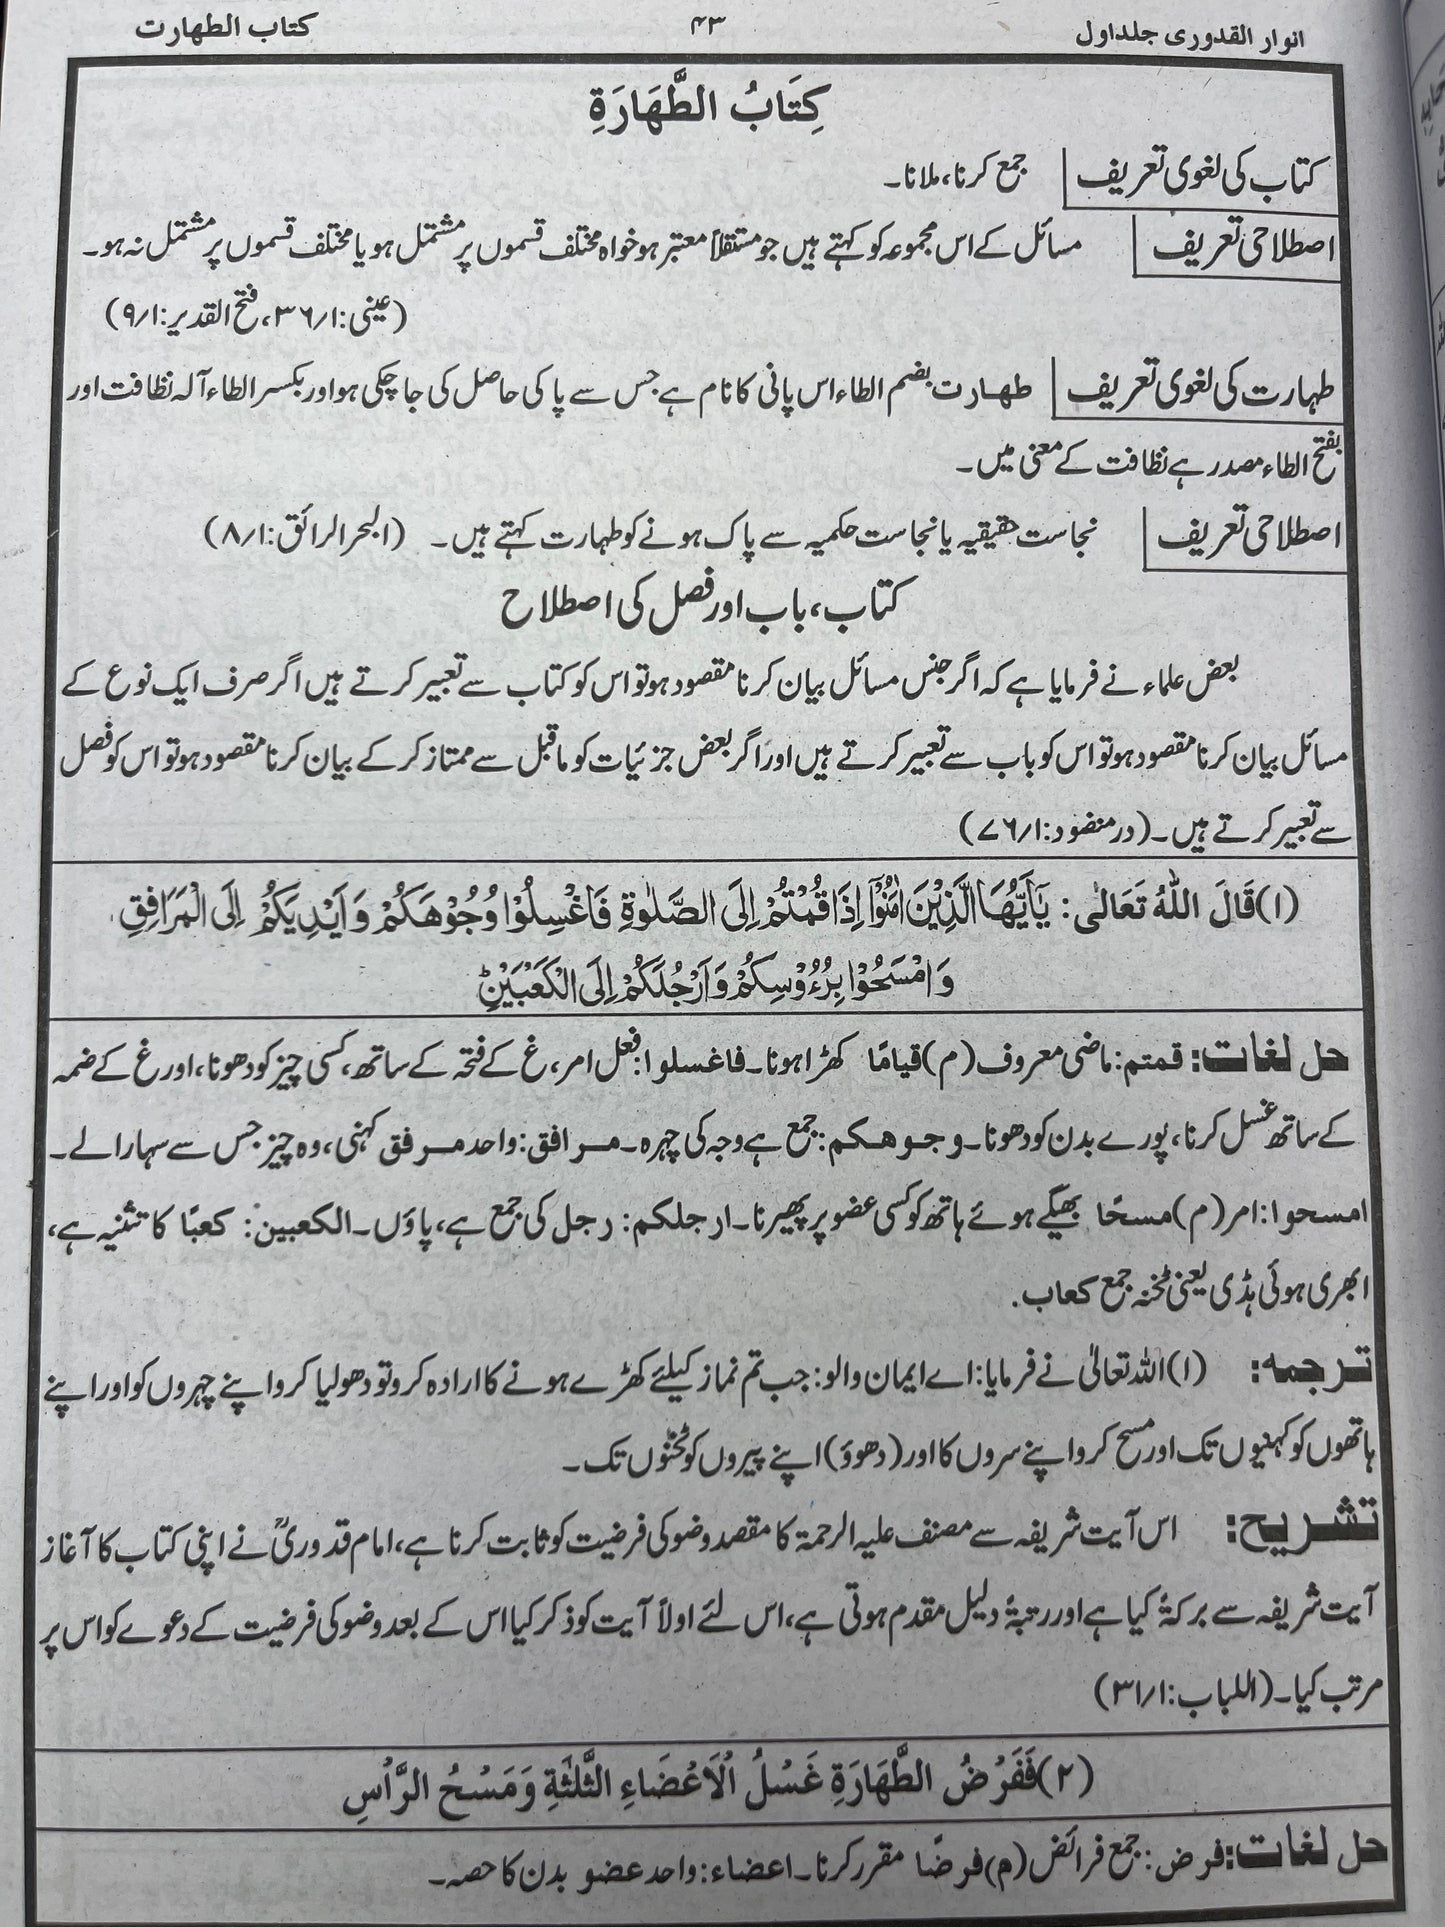 انوار القدوری جلد اول
۴۳
کتاب الطهارت
كِتَابُ الطَّهَارَةِ
کتاب کی لغوی تعریف جمع کرنا، ملانا۔
اصطلاحی تعریف مسائل کے اس مجموعہ کو کہتے ہیں جو مستقلاً معتبر ہو خواہ مختلف قسموں پر مشتمل ہو یا مختلف قسموں پر مشتمل نہ ہو۔
(عینی: ۱/۳۶، فتح القدیر: ۱/۹)
طہارت کی لغوی تعریف طهارت بضم الطاء اس پانی کا نام ہے جس سے پاکی حاصل کی جا چکی ہو اور بکسر الطاء آلہ نظافت اور
بفتح الطاء مصدر ہے نظافت کے معنی میں۔
اصطلاحی تعریف نجاست حقیقیہ یا نجاست حکمیہ سے پاک ہونے کو طہارت کہتے ہیں۔ (البحر الرائق: ۱/۸)
کتاب، باب اور فصل کی اصطلاح
بعض علماء نے فرمایا ہے کہ اگر جنس مسائل بیان کرنا مقصود ہو تو اس کو کتاب سے تعبیر کرتے ہیں اگر صرف ایک نوع کے
مسائل بیان کرنا مقصود ہو تو اس کو باب سے تعبیر کرتے ہیں اور اگر بعض جزئیات کو ماقبل سے ممتاز کر کے بیان کرنا مقصود ہو تو اس کو فصل
سے تعبیر کرتے ہیں۔ (درمنضود: ۱/۷۶)
(۱) قَالَ اللّٰهُ تَعَالٰى: يٰۤاَيُّهَا الَّذِيْنَ اٰمَنُوْۤا اِذَا قُمْتُمْ اِلَى الصَّلٰوةِ فَاغْسِلُوْا وُجُوْهَكُمْ وَاَيْدِيَكُمْ اِلَى الْمَرَافِقِ
وَامْسَحُوْا بِرُءُوْسِكُمْ وَاَرْجُلَكُمْ اِلَى الْكَعْبَيْنِ ؕ
حل لغات: قمتم: ماضی معروف (م) قیامًا کھڑا ہونا۔ فاغسلوا: فعل امر، غ کے فتحہ کے ساتھ، کسی چیز کو دھونا، اور غ کے ضمہ
کے ساتھ غسل کرنا، پورے بدن کو دھونا۔ وجوهكم: جمع ہے وجہ کی چہرہ۔ مرافق: واحد مرفق کہنی، وہ چیز جس سے سہارا لے۔
امسحوا: امر (م) مسحًا بھیگے ہوئے ہاتھ کو کسی عضو پر پھیرنا۔ ارجلکم: رجل کی جمع ہے، پاؤں۔ الکعبین: کعبًا کا تثنیہ ہے،
ابھری ہوئی ہڈی یعنی ٹخنہ جمع کعاب.
ترجمہ: (۱) اللہ تعالیٰ نے فرمایا: اے ایمان والو: جب تم نماز کیلئے کھڑے ہونے کا ارادہ کرو تو دھولیا کرو اپنے چہروں کو اور اپنے
ہاتھوں کو کہنیوں تک اور مسح کرو اپنے سروں کا اور (دھوؤ) اپنے پیروں کو ٹخنوں تک۔
تشریح: اس آیت شریفہ سے مصنف علیہ الرحمۃ کا مقصد وضو کی فرضیت کو ثابت کرنا ہے، امام قدوریؒ نے اپنی کتاب کا آغاز
آیت شریفہ سے برکۃً کیا ہے اور رتبۃً دلیل مقدم ہوتی ہے، اس لئے اولاً آیت کو ذکر کیا اس کے بعد وضو کی فرضیت کے دعوے کو اس پر
مرتب کیا۔ (اللباب: ۱/۳۱)
(۲) فَفَرْضُ الطَّهَارَةِ غَسْلُ الْاَعْضَاءِ الثَّلٰثَةِ وَمَسْحُ الرَّأْسِ
حل لغات: فرض: جمع فرائض (م) فرضًا مقرر کرنا۔ اعضاء: واحد عضو بدن کا حصہ۔